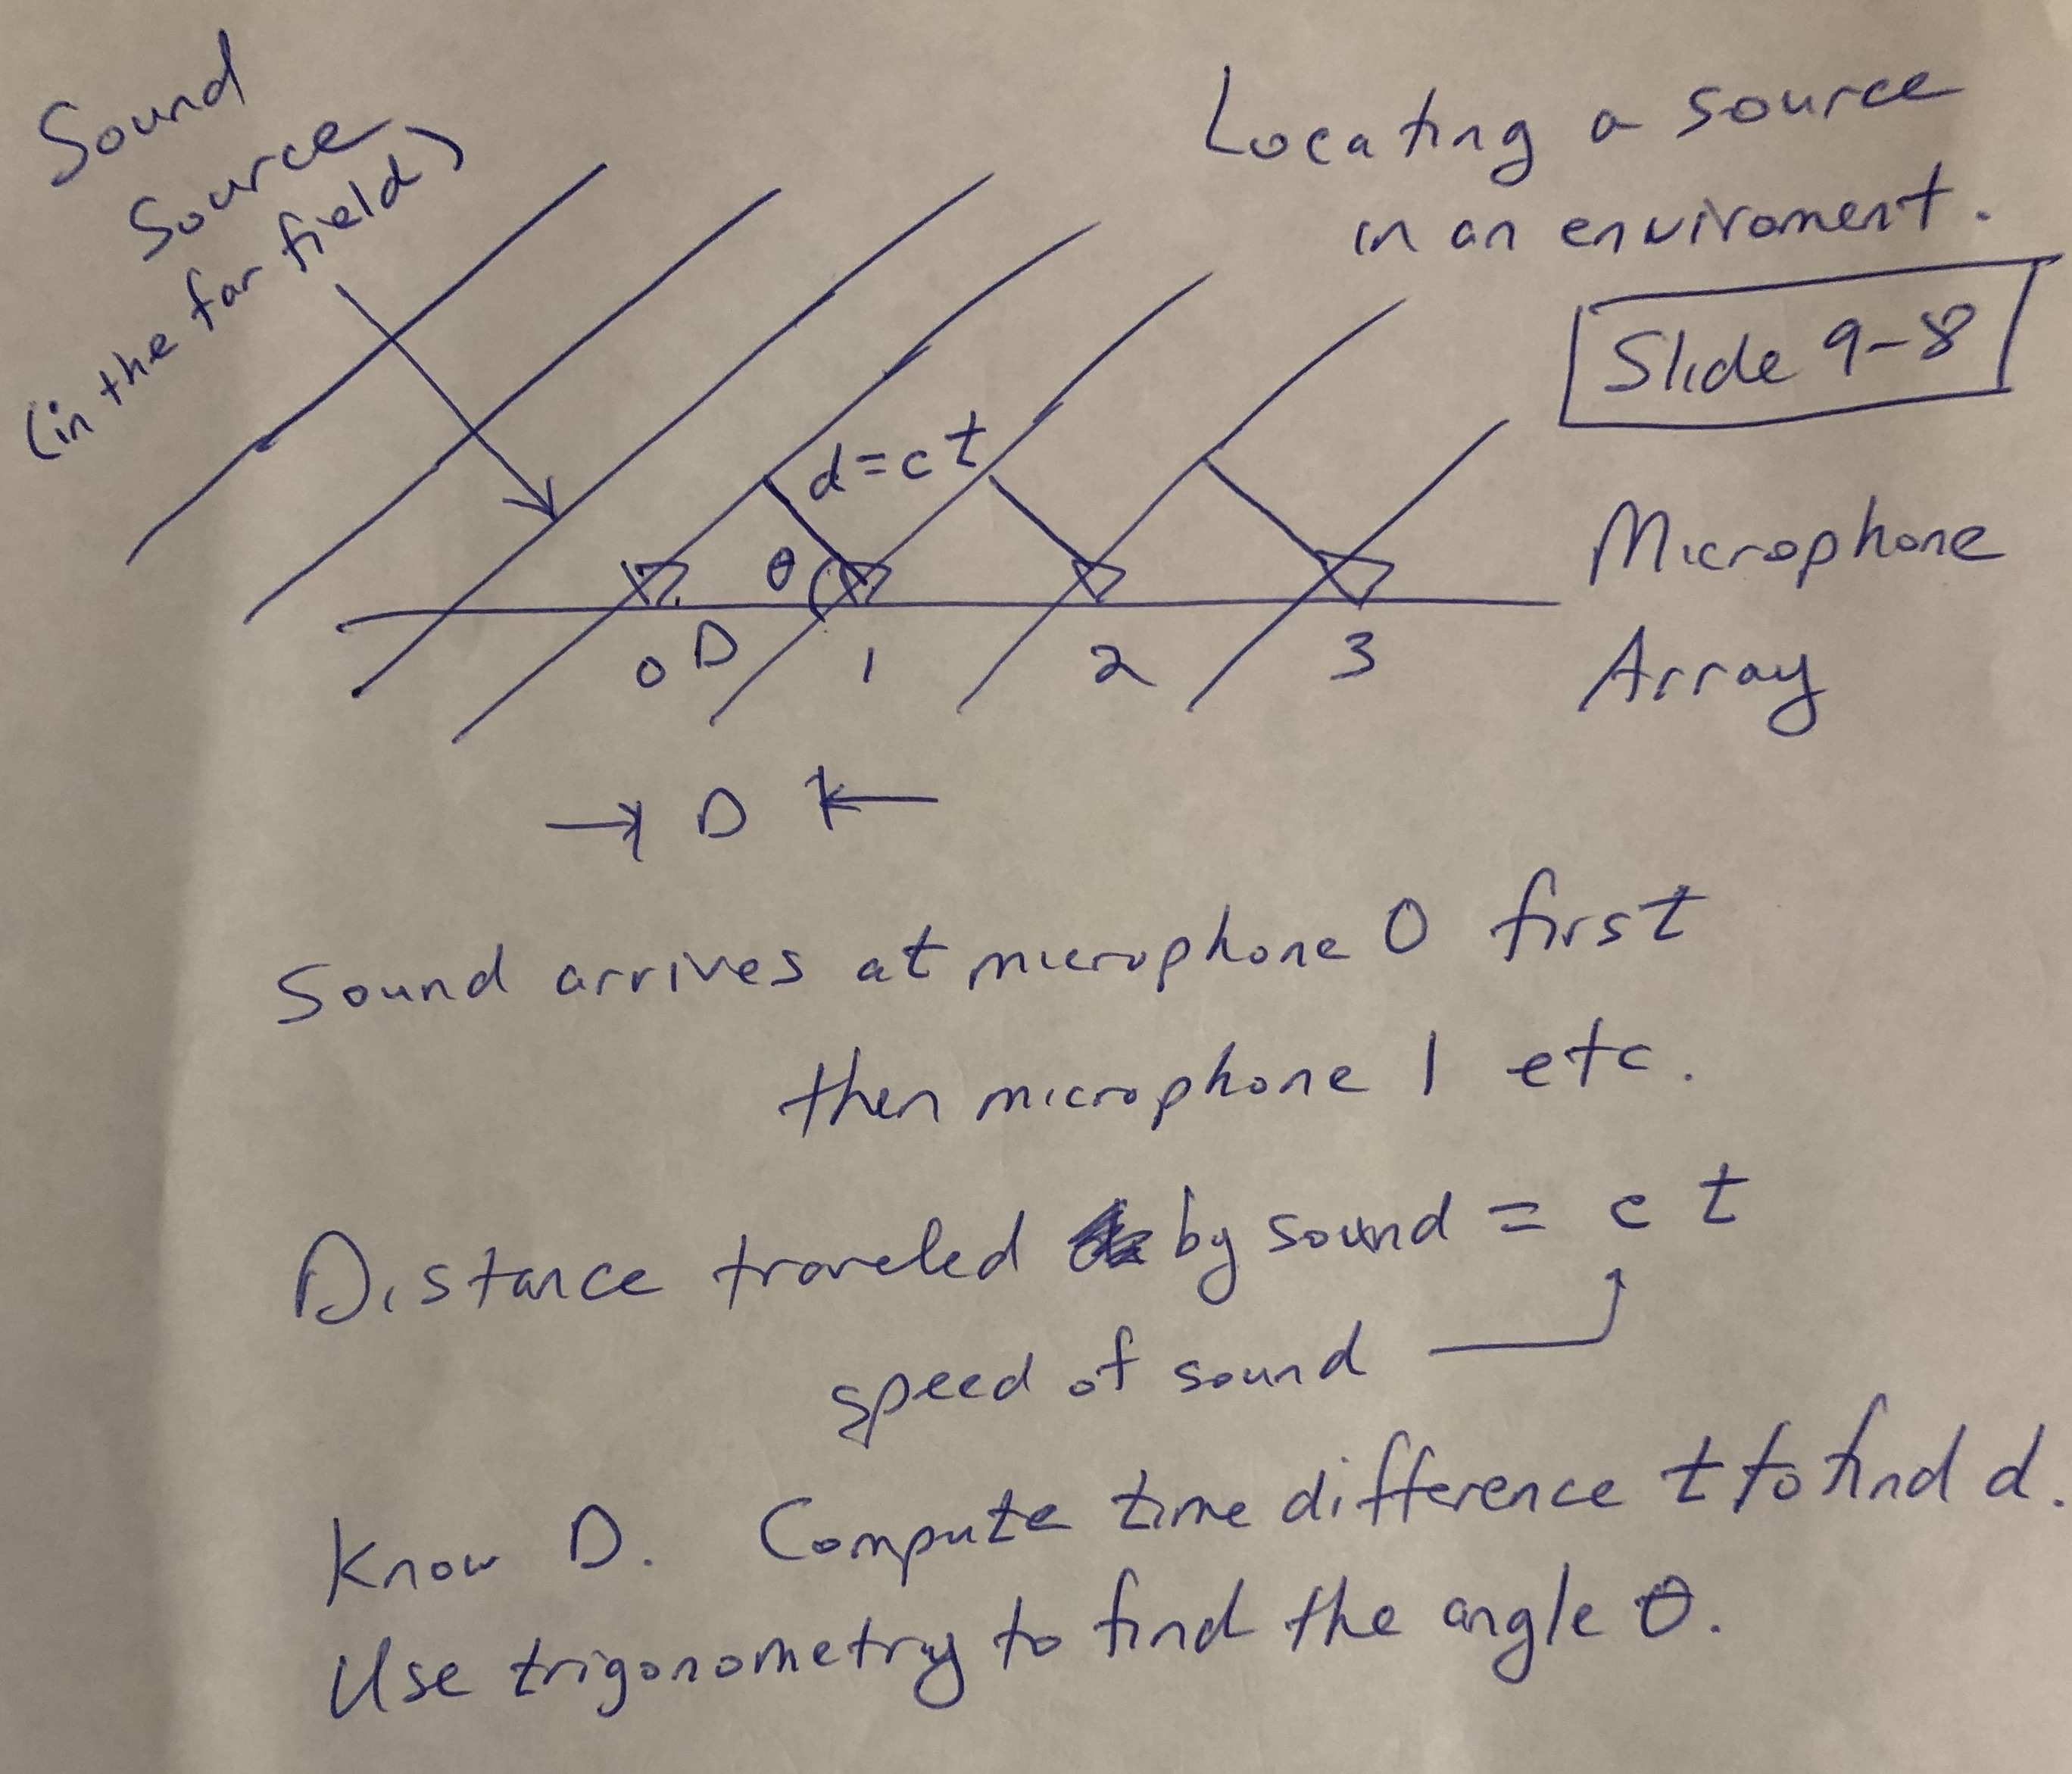 Sound
Source
(in the far field)
Locating a source
in an enviroment.
Slide 9-8
d=ct
θ
Microphone
Array
0 D 1 2 3
D
Sound arrives at microphone 0 first
then microphone 1 etc.
Distance traveled by sound = c t
speed of sound
Know D. Compute time difference t to find d.
Use trigonometry to find the angle θ.